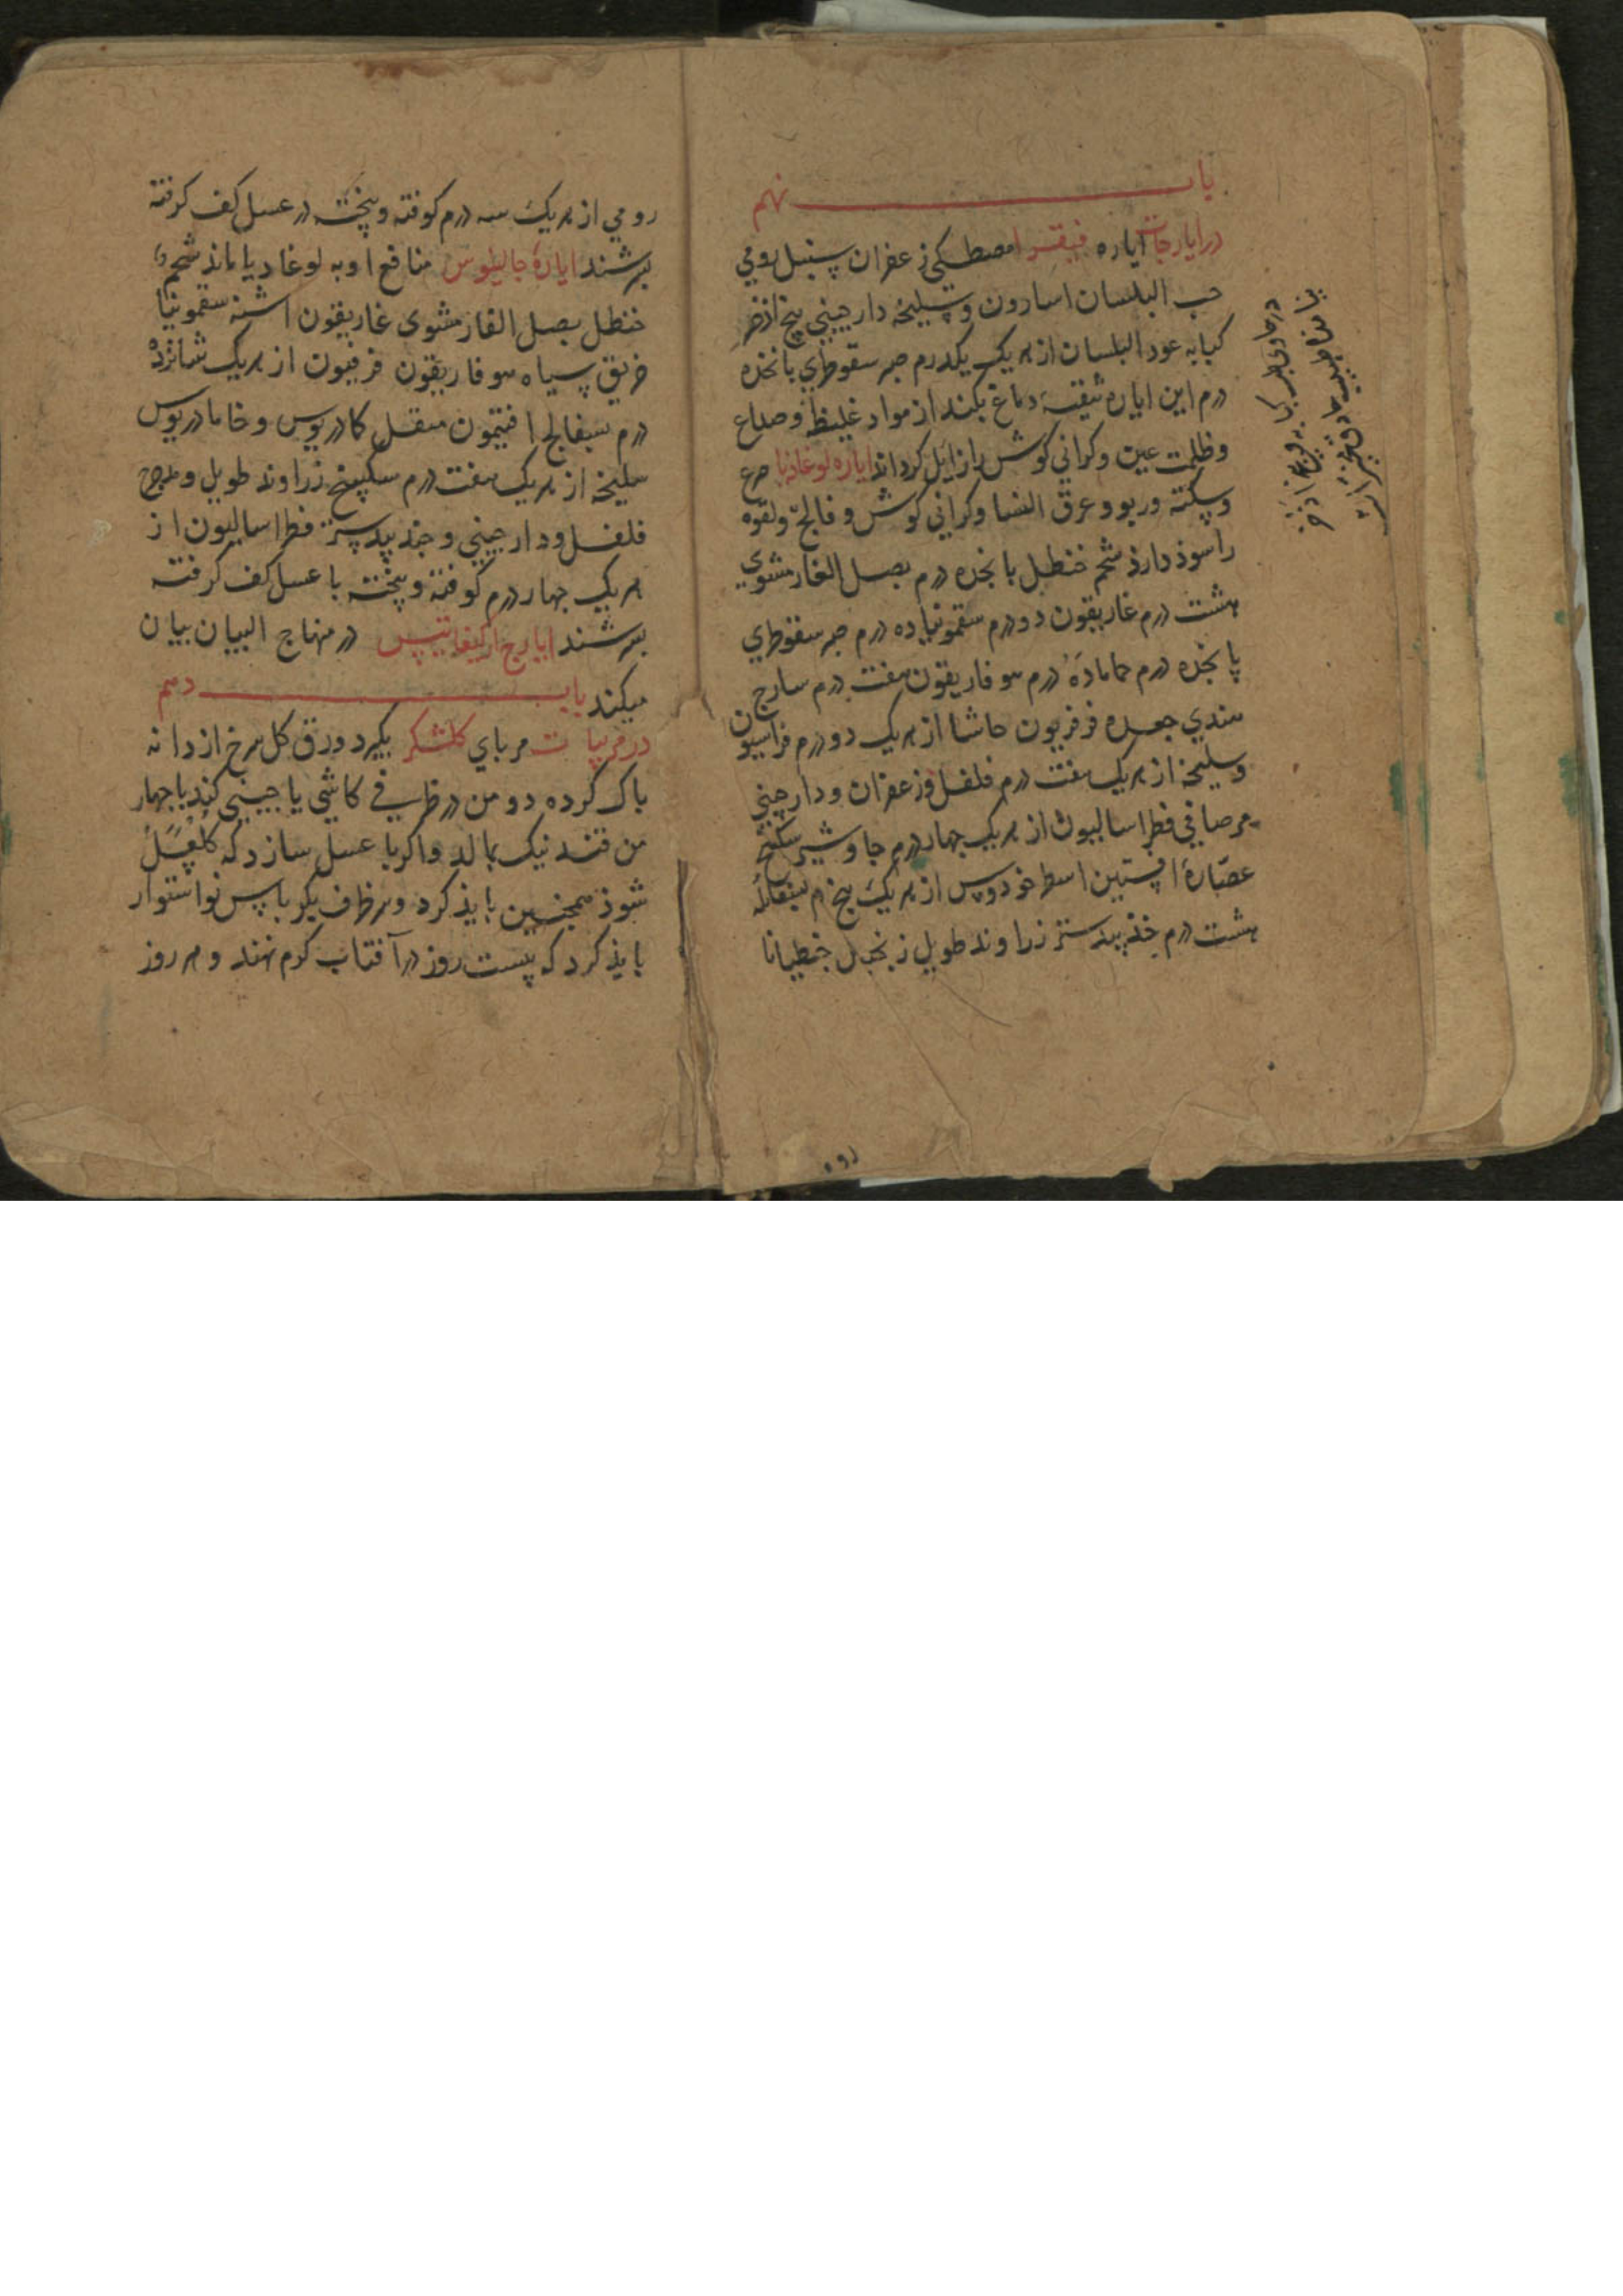 باب نهم
در ایارجات ایاره فیقرا مصطکی زعفران سنبل رومی
حب البلسان اسارون و سلیخه دارچینی بیخ اذخر
کبابه عود البلسان از هریک یکدرم صبر سقوطری پانزده
درم این ایاره تنقیه دماغ بکند از مواد غلیظ و صداع
و ظلمت عین و کرانی کوش را زایل کرداند ایاره لوغاذیا صرع
و سکته و ربو و عرق النسا و کرانی کوش و فالج و لقوه
را سوذ دارذ شحم حنظل پانجده درم بصل الفار مشوی
هشت درم غاریقون دو درم سقمونیا ده درم صبر سقوطری
پانجده درم حاماده درم هوفاریقون هفت درم سارج
هندی جعده فرفریون حاشا از هریک دو درم فراسیون
و سلیخه از هریک هفت درم فلفل و زعفران و دارچینی
مر صافی فطراسالیون از هریک چهار درم جاوشیر سکبینج
عصاره افسنتین اسطوخودوس از هریک پنج درم
هشت درم جندبیدستر زراوند طویل زنجبیل جنطیانا
رومی از هریک سه درم کوفته و بیخته در عسل کف کرفته
بسرشند ایاره جالینوس منافع او به لوغادیا ماند شحم
حنظل بصل الفار مشوی غاریقون اشنه سقمونیا
خربق سیاه هوفاریقون فرفیون از هریک شانزده
درم بسفایج افتیمون مقل کمادریوس و خامادریوس
سلیخه از هریک هفت درم سکبینج زراوند طویل و مدحرج
فلفل و دارچینی و جندبیدستر فطراسالیون از
هریک چهار درم کوفته و بیخته با عسل کف کرفته
بسرشند ایارج ارکیغانیس در منهاج البیان بیان
میکند باب دهم
در مربیات مربای کلشکر بکیرد ورق کل سرخ از دانه
پاک کرده دو من در ظرفی کاشی یا چینی کند با چهار
من قند نیک بمالد و اکر با عسل سازد که کلعسل
شوذ همچنین بایذ کرد و سر ظرف بکرباس نو استوار
بایذ کرد که بیست روز در آفتاب کرم نهند و هر روز